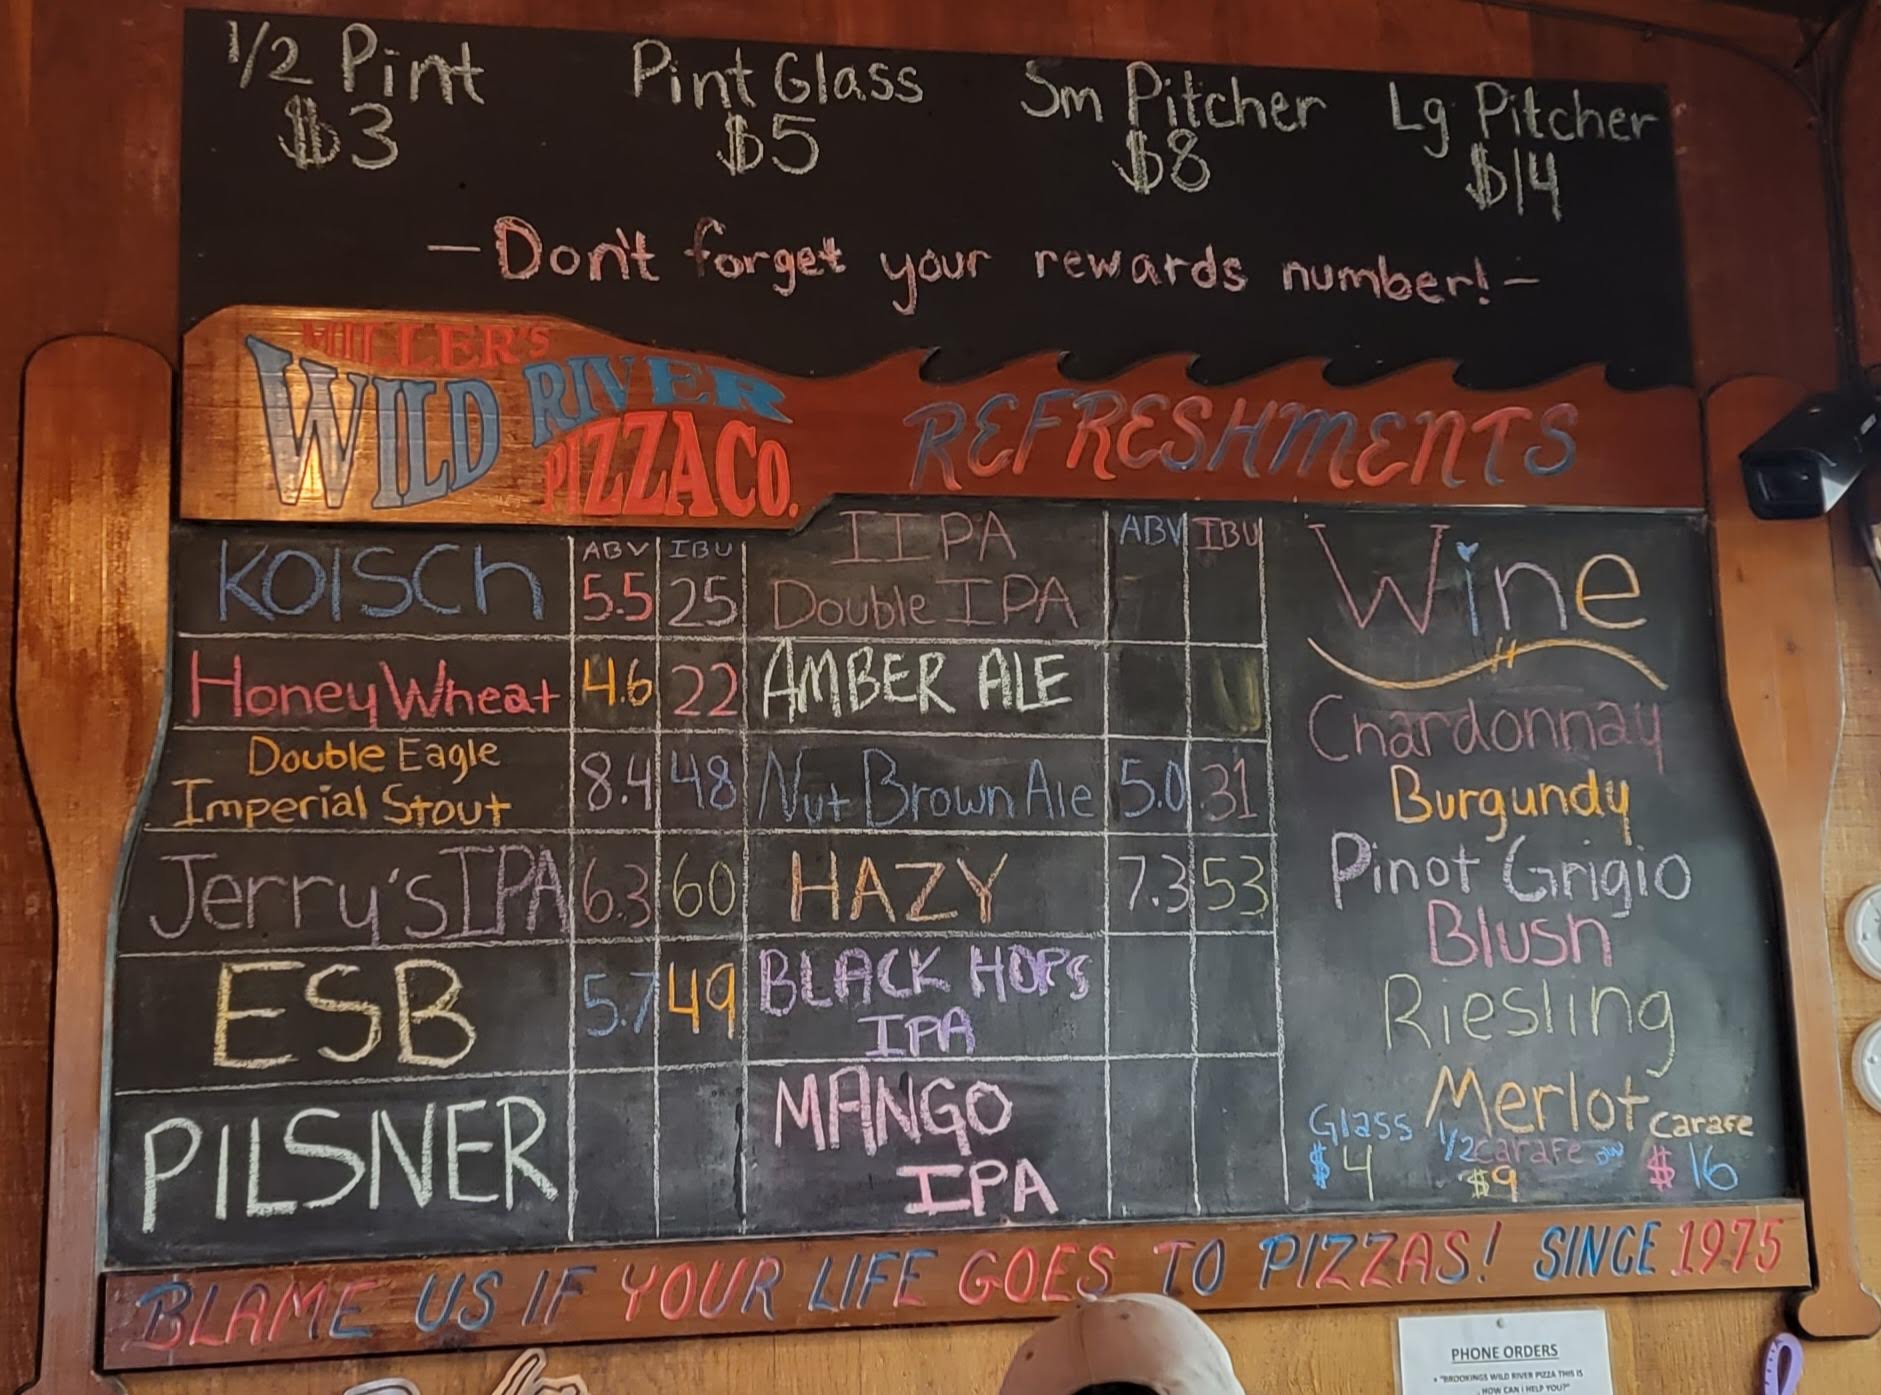 1/2 Pint Pint Glass Sm Pitcher Lg Pitcher
$3 $5 $8 $14
— Don't forget your rewards number! —
MILLER'S
WILD RIVER
PIZZA CO.
REFRESHMENTS
ABV IBU
KOlSCh 5.5 25
Honey Wheat 4.6 22
Double Eagle
Imperial Stout 8.4 48
Jerry's IPA 6.3 60
ESB 5.7 49
PILSNER
ABV IBU
IIPA
Double IPA
AMBER ALE
Nut Brown Ale 5.0 31
HAZY 7.3 53
BLACK HOPS
IPA
MANGO
IPA
Wine
Chardonnay
Burgundy
Pinot Grigio
Blush
Riesling
Merlot
Glass 1/2 carafe carafe
$4 $9 $16
BLAME US IF YOUR LIFE GOES TO PIZZAS! SINCE 1975
PHONE ORDERS
• "BROOKINGS WILD RIVER PIZZA THIS IS
, HOW CAN I HELP YOU?"